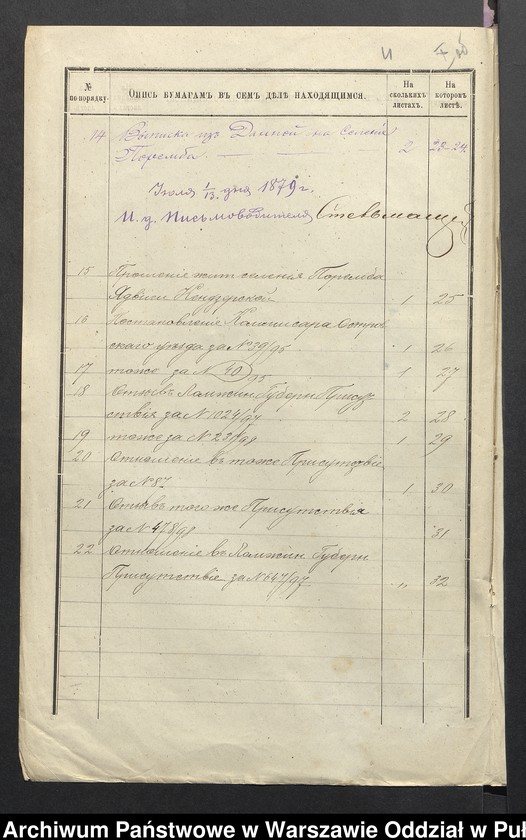 № по порядку.
Опись бумагамъ въ семъ дѣлѣ находящимся.
На сколькихъ листахъ.
На которомъ листѣ.
14 Выписка изъ Данной на селеніе
Поремба. — 2 23-24
Іюля 1/13 дня 1879 г.
И. д. Письмоводителя
15 Прошеніе жит. селенія Поремба
Ядвиги 1 25
16 Постановленіе Комиссара Остров
скаго уѣзда за № 39/95 1 26
17 тоже за № 40/95 1 27
18 Отзывъ Ломжин. Губерн. Присут
ствія за № 1024/97 2 28
19 тоже за № 231/98 1 29
20 Отношеніе въ тоже Присутствіе
за № 87 1 30
21 Отзывъ того же Присутствія
за № 478/98 31
22 Отношеніе въ Ломжин. Губерн.
Присутствіе за № 647/97 „ 32
Archiwum Państwowe w Warszawie Oddział w Puł